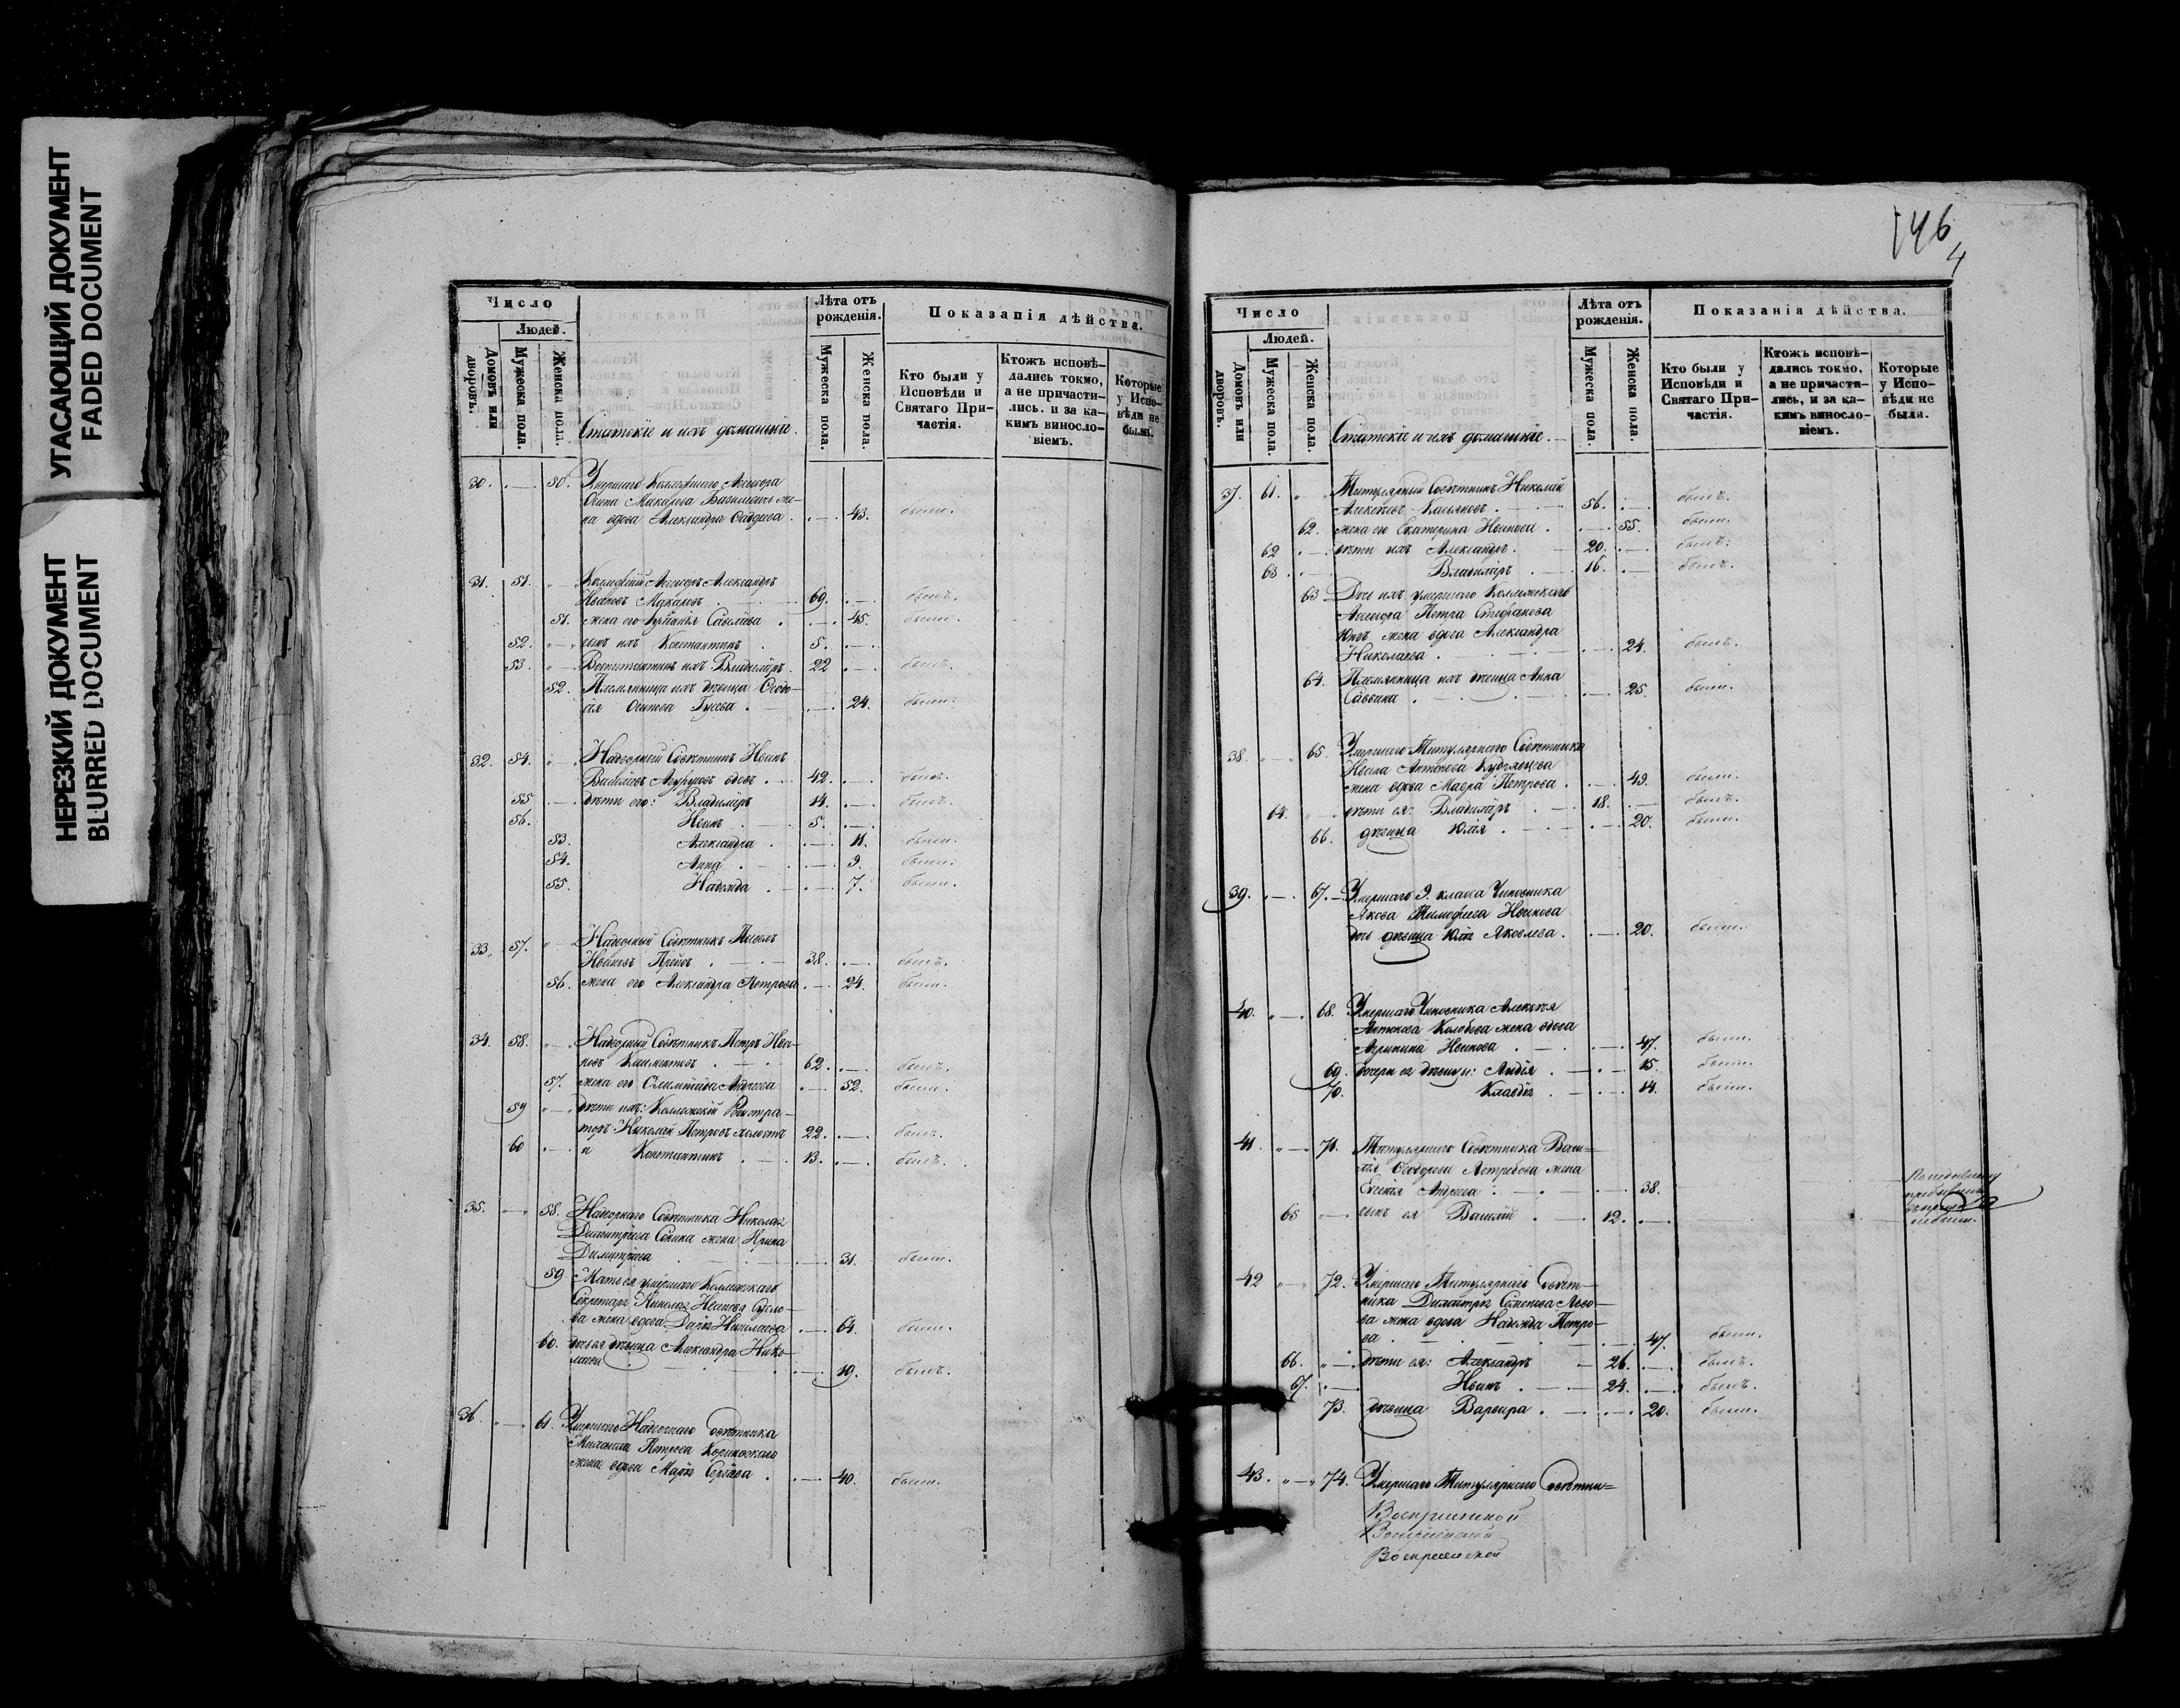 УГАСАЮЩИЙ ДОКУМЕНТ
FADED DOCUMENT
НЕРЕЗКИЙ ДОКУМЕНТ
BLURRED DOCUMENT
Число
Людей.
Домовъ или дворовъ.
Мужеска пола.
Женска пола.
Статскіе и ихъ домашніе.
Лѣта отъ рожденія.
Мужеска пола.
Женска пола.
Показанія дѣйства.
Кто были у Исповѣди и Святаго Причастія.
Ктожъ исповѣдались токмо, а не причастились. и за какимъ винословіемъ.
Которые у Исповѣди не были.
30. 50. Умершаго Коллежскаго Ассесора
Осипа Макарова
вдова Александра 43. была.
31. 51. Коллежскій Ассесоръ Александръ
Ивановъ 69. былъ.
51. жена его 45. была.
52. сынъ ихъ Константинъ 5.
53. Воспитанникъ ихъ Владиміръ 22 былъ.
52. Племянница ихъ дѣвица Ѳеодо-
сія Осипова Гусева 24. была.
32. 54. Надворный Совѣтникъ Иванъ
Васильевъ вдовъ 42. былъ.
55 дѣти его: Владиміръ 14. былъ.
56. Иванъ 5.
53. Александра 11. была.
54. Анна 9. была.
55. Надежда 7. была.
33. 57. Надворный Совѣтникъ Павелъ
Ивановъ 38. былъ.
56. жена его Александра Петрова 24. была.
34. 58. Надворный Совѣтникъ Петръ Ива-
новъ Климентовъ 62. былъ.
57. жена его Олимпіада Андреева 52. была.
59 дѣти ихъ: Коллежскій Регистра-
торъ Николай Петровъ холостъ 22. былъ.
60 и Константинъ 13. былъ.
35. 58. Надворнаго Совѣтника Николая
Димитріева жена Ирина
Димитріева 31. была.
59 Мать ея умершаго Коллежскаго
Секретаря Николая Иванова
ва жена вдова Дарія Николаева 64. была.
60. дочь ея дѣвица Александра Нико-
лаева 19. былъ.
36. 61. Умершаго Надворнаго Совѣтника
Михаила Петрова
жена вдова Марія Сергіева 40. была.
146
4
Число
Людей.
Домовъ или дворовъ.
Мужеска пола.
Женска пола.
Статскіе и ихъ домашніе.
Лѣта отъ рожденія.
Мужеска пола.
Женска пола.
Показанія дѣйства.
Кто были у Исповѣди и Святаго Причастія.
Ктожъ исповѣдались токмо, а не причастились, и за какимъ винословіемъ.
Которые у Исповѣди не были.
37. 61. Титулярный Совѣтникъ Николай
Алексѣевъ Касьяновъ 56. былъ.
62. жена его Екатерина Иванова 55. была.
62 дѣти ихъ Александръ 20. былъ.
63 Владиміръ 16. былъ.
63 Дочь ихъ умершаго Коллежскаго
Ассесора Петра Стефанова
жена вдова Александра
Николаева 24. былъ.
64. Племянница ихъ дѣвица Анна
Саввина 25. была.
38. 65 Умершаго Титулярнаго Совѣтника
Ивана Антонова
жена вдова Мавра Петрова 49. была.
64. дѣти ея: Владиміръ 18. былъ.
66. дѣвица Юлія 20. была.
39. 67. Умершаго 9. класса Чиновника
Якова Тимофеева Иванова
дочь дѣвица Юлія Яковлева 20. была.
40. 68. Умершаго Чиновника Алексѣя
Антонова Колобова жена вдова
Агрипина Иванова 47. была.
69. дочери ея дѣвицы: Лидія 15. была.
70. Клавдія 14. была.
41. 71. Титулярнаго Совѣтника Васи-
лія Ѳеодорова Ястребова жена
Евгенія Андреева 38.
65 сынъ ея Василій 12.
не были.
42 72. Умершаго Титулярнаго Совѣт-
ника Димитрія Семенова Льво-
ва жена вдова Надежда Петро-
ва 47. была.
66. дѣти ея: Александръ 26. былъ.
67. Иванъ 24. былъ.
73. дѣвица Варвара 20. была.
43. 74. Умершаго Титулярнаго Совѣтни-